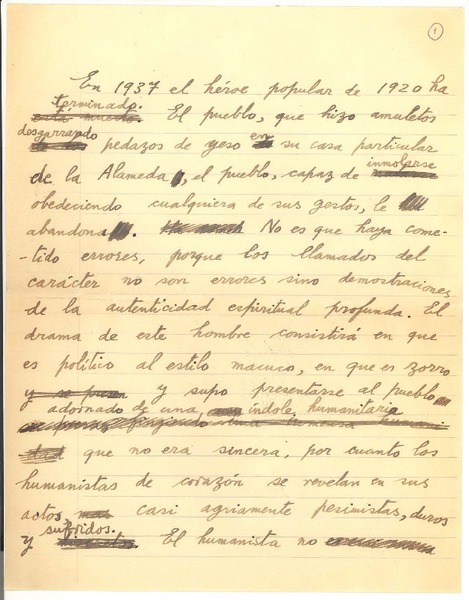 1
En 1937 el héroe popular de 1920 ha
terminado.
está muerto. El pueblo, que hizo amuletos
desgarrando
pedazos de yeso en su casa particular
de la Alameda, el pueblo, capaz de
inmolarse
obedeciendo cualquiera de sus gestos, le
abandona. No es que haya come-
-tido errores, porque los llamados del
carácter no son errores sino demostraciones
de la autenticidad espiritual profunda. El
drama de este hombre consistirá en que
es político al estilo macuco, en que es zorro
y supo presentarse al pueblo
adornado de una índole humanitaria
que no era sincera, por cuanto los
humanistas de corazón se revelan en sus
actos casi agriamente pesimistas, duros
y sufridos. El humanista no